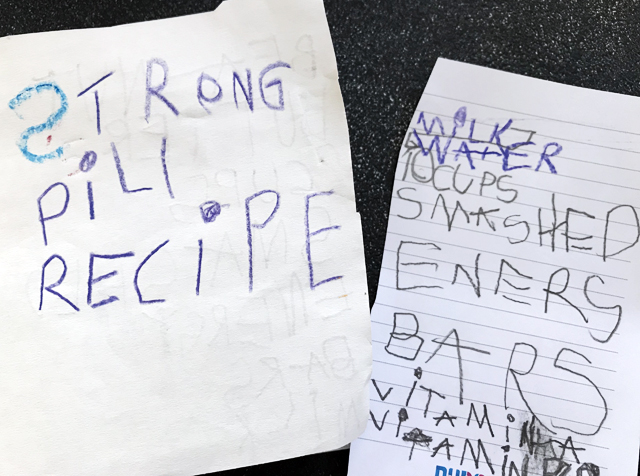 STRONG
PILI
RECIPE
MILK
WATER
10CUPS
SMASHED
ENERG
BARS
VITAMIN A
VITAMIN